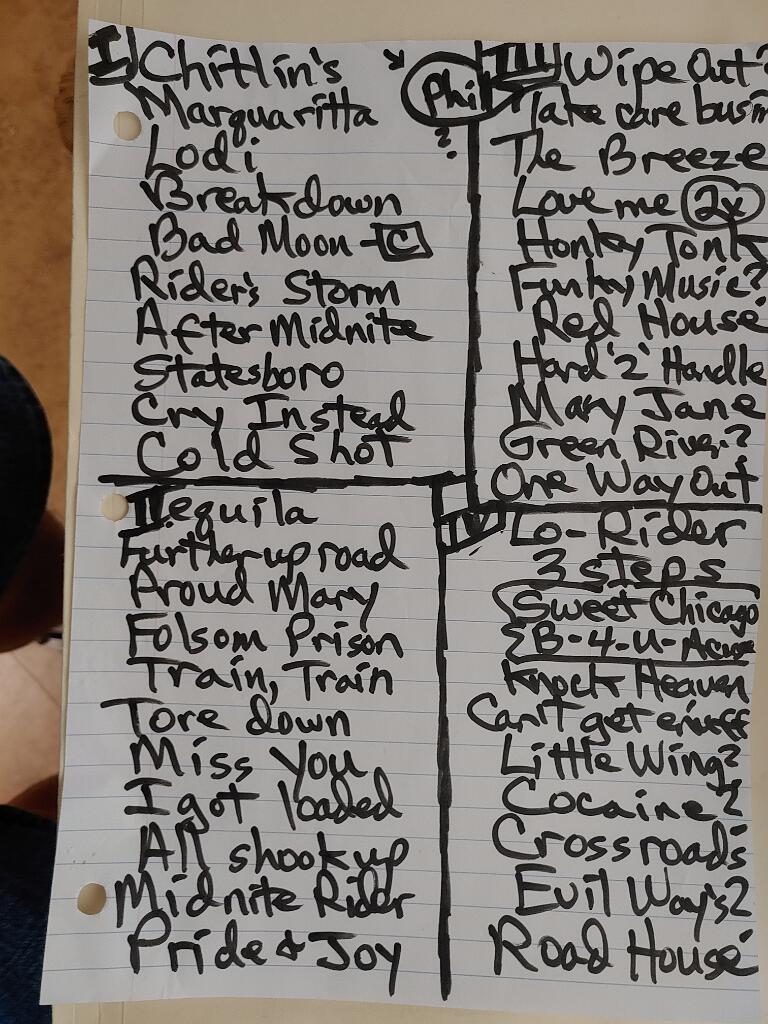 I Chitlin's
Marquaritta
Lodi
Breakdown
Bad Moon - C
Rider's Storm
After Midnite
Statesboro
Cry Instead
Cold Shot
Phil
?
III Wipe Out?
Take care busin
The Breeze
Love me 2x
Honky Tonk
Funky Music?
Red House
Hard '2' Handle
Mary Jane
Green River?
One Way Out
II Tequila
Further up road
Proud Mary
Folsom Prison
Train, Train
Tore down
Miss You
I got loaded
All shook up
Midnite Rider
Pride & Joy
IV Lo-Rider
3 steps
Sweet Chicago
B-4-U-Acuse
Knock Heaven
Can't get enuff
Little Wing?
Cocaine?
Crossroads
Evil Way's?
Road House